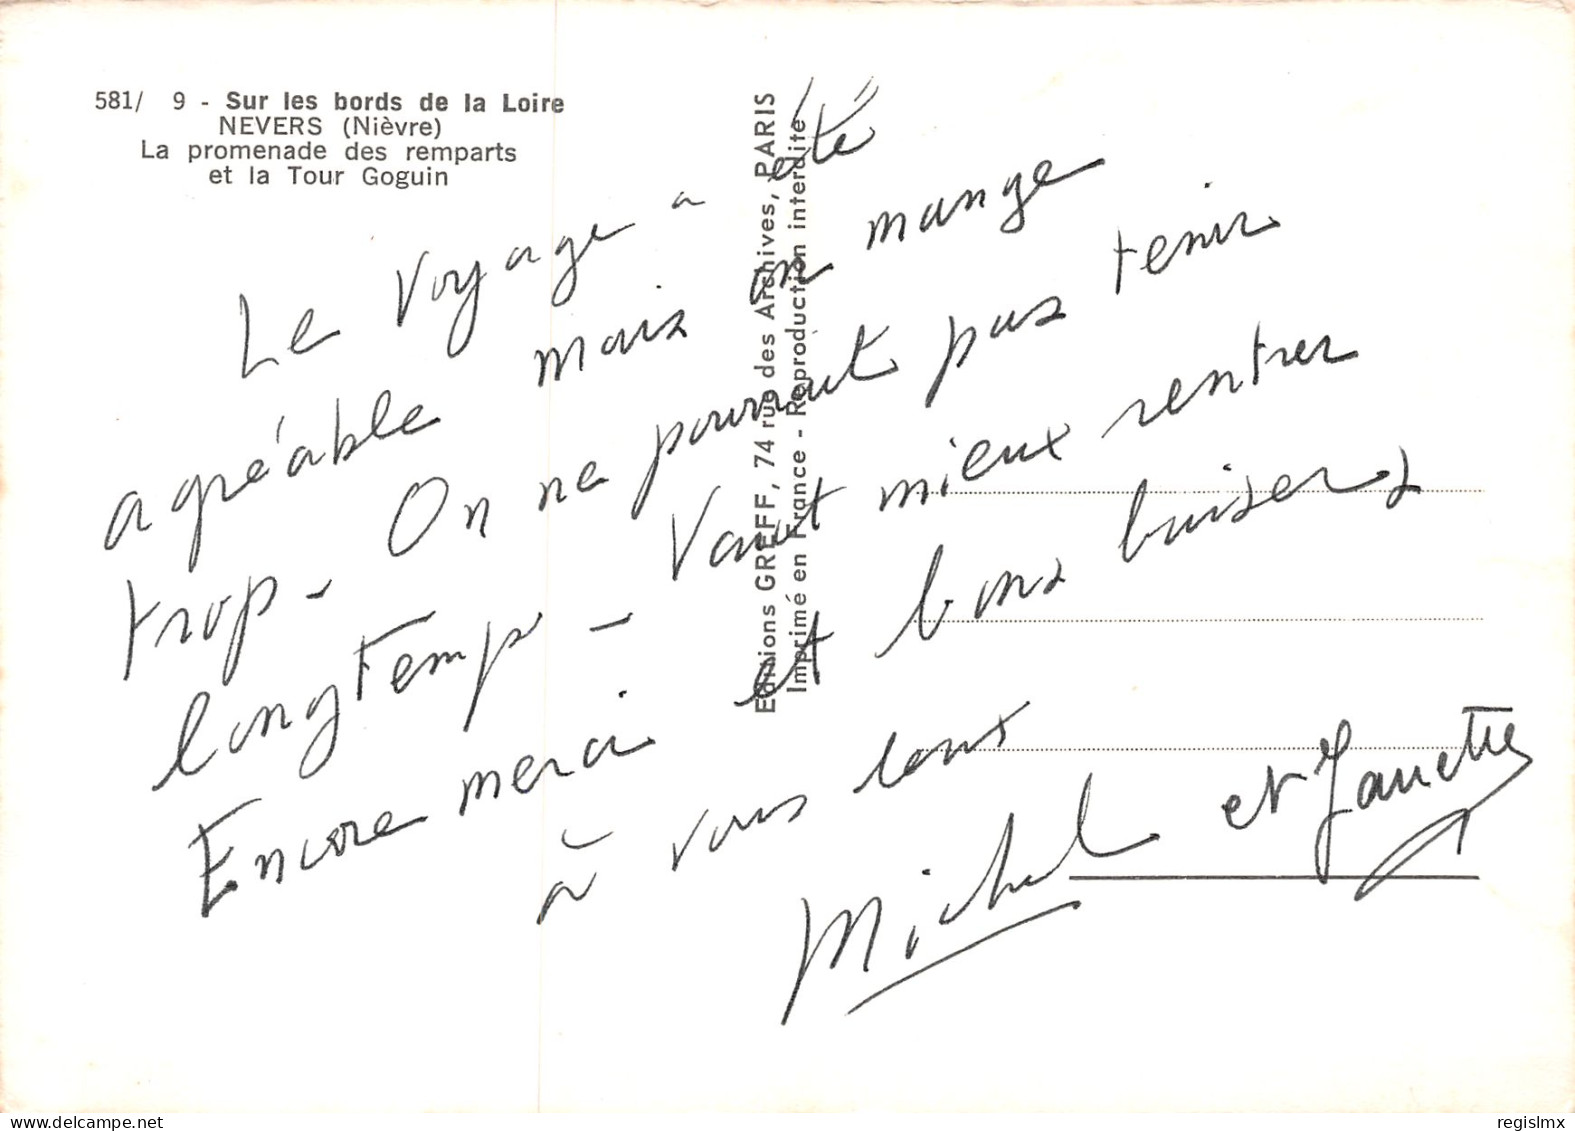 581/ 9 - Sur les bords de la Loire
NEVERS (Nièvre)
La promenade des remparts
et la Tour Goguin
Editions GREFF, 74 rue des Archives, PARIS
Imprimé en France - Reproduction interdite
Le voyage a été
agréable mais on mange
trop - On ne pourrait pas tenir
longtemps - Vaut mieux rentrer
Encore merci et bons baisers
à vous tous
Michel et Janette
regislmx